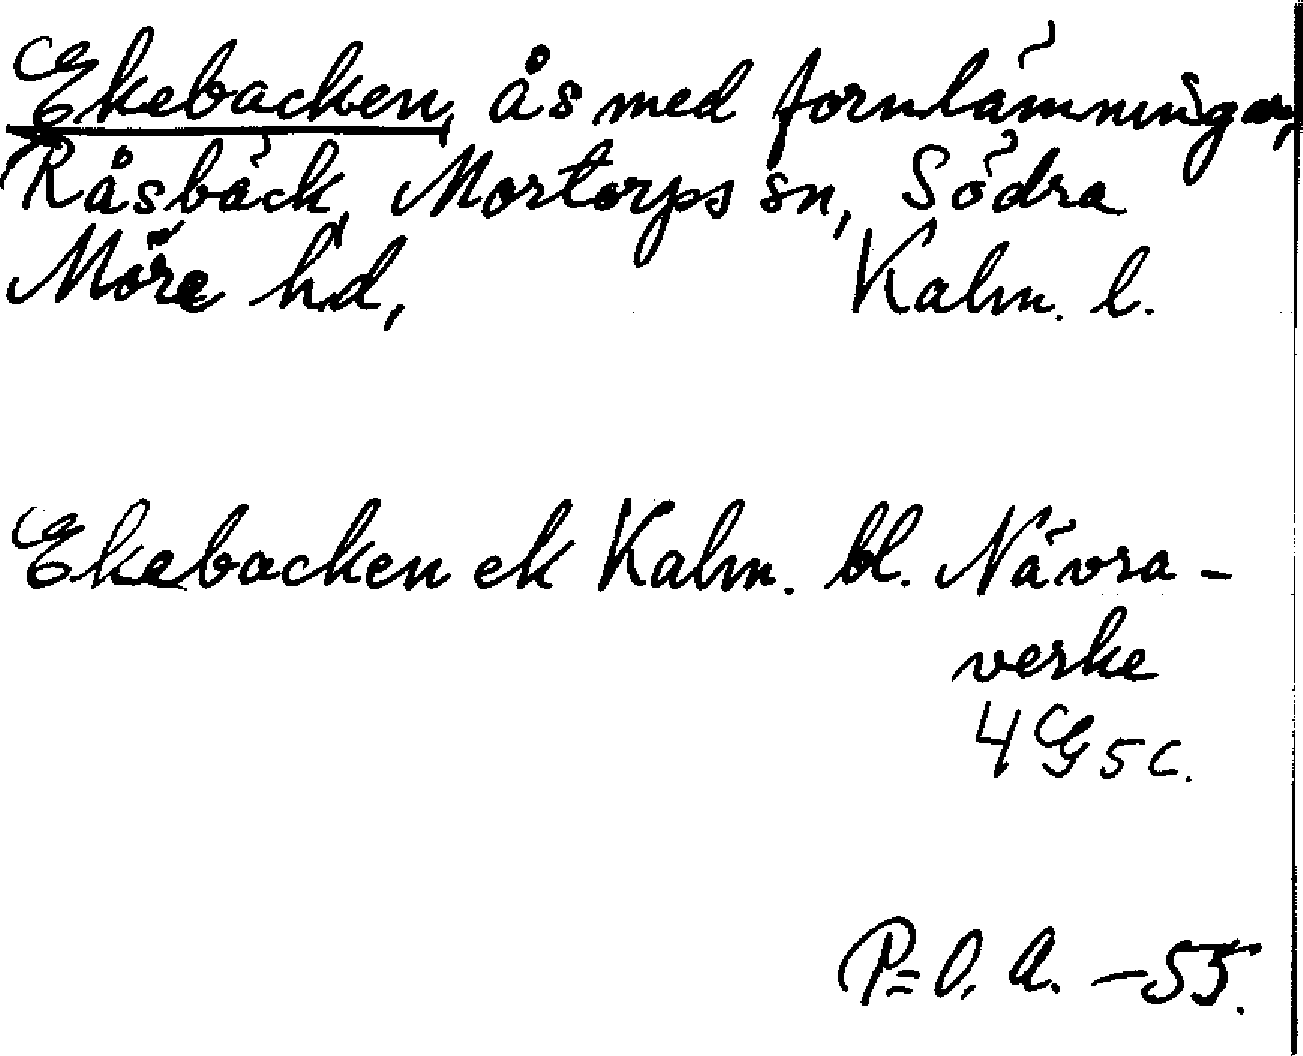 Ekebacken, ås med fornlämningar,
Råsbäck, Mortorps sn, Södra
Möre hd, Kalm. l.
Ekebacken ek Kalm. bl. Nävra-
verke
4G5c.
P=O. A. -55.